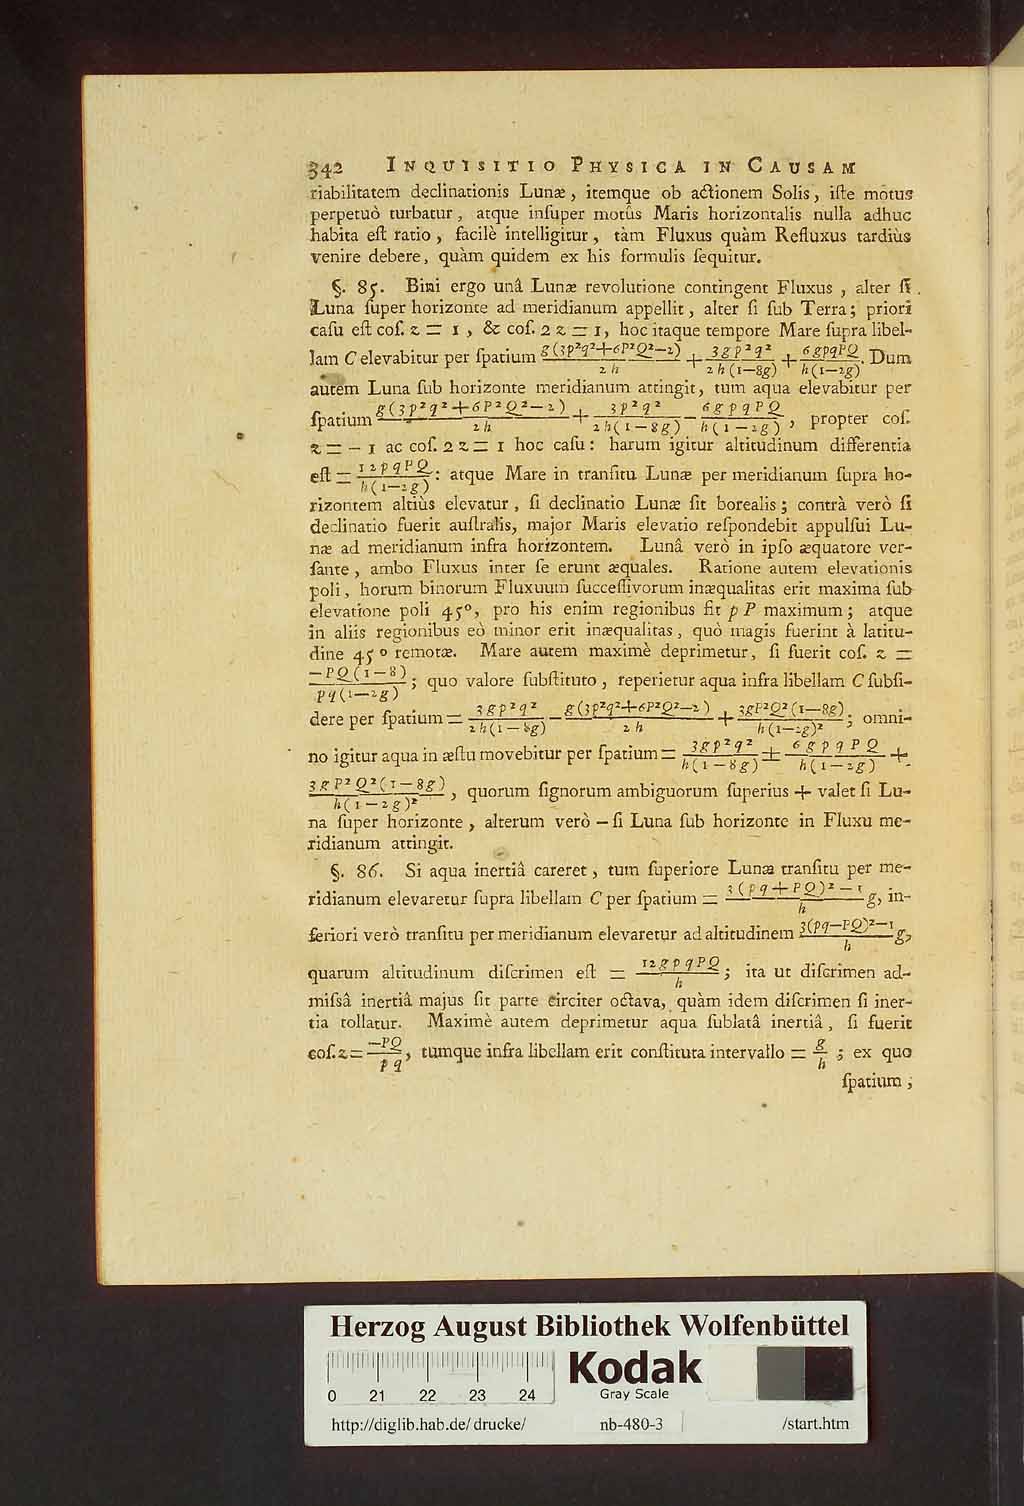 342 INQUISITIO PHYSICA IN CAUSAM
riabilitatem declinationis Lunæ, itemque ob actionem Solis, iſte motus
perpetuò turbatur, atque inſuper motûs Maris horizontalis nulla adhuc
habita eſt ratio, facilè intelligitur, tàm Fluxus quàm Refluxus tardiùs
venire debere, quàm quidem ex his formulis ſequitur.
§. 85. Bini ergo unâ Lunæ revolutione contingent Fluxus, alter ſi
Luna ſuper horizonte ad meridianum appellit, alter ſi ſub Terra; priori
caſu eſt coſ. z = 1, & coſ. 2 z = 1, hoc itaque tempore Mare ſupra libel-
lam C elevabitur per ſpatium g(3p²q²+6P²Q²—2)/2h + 3gp²q²/2h(1—8g) + 6gpqPQ/h(1—2g). Dum
autem Luna ſub horizonte meridianum attingit, tum aqua elevabitur per
ſpatium g(3p²q²+6P²Q²—2)/2h + 3p²q²/2h(1—8g) — 6gpqPQ/h(1—2g), propter coſ.
z = — 1 ac coſ. 2 z = 1 hoc caſu: harum igitur altitudinum differentia
eſt = 12pqPQ/h(1—2g): atque Mare in tranſitu Lunæ per meridianum ſupra ho-
rizontem altiùs elevatur, ſi declinatio Lunæ ſit borealis; contrà verò ſi
declinatio fuerit auſtralis, major Maris elevatio reſpondebit appulſui Lu-
næ ad meridianum infra horizontem. Lunâ verò in ipſo æquatore ver-
ſante, ambo Fluxus inter ſe erunt æquales. Ratione autem elevationis
poli, horum binorum Fluxuum ſucceſſivorum inæqualitas erit maxima ſub
elevatione poli 45°, pro his enim regionibus fit p P maximum; atque
in aliis regionibus eò minor erit inæqualitas, quò magis fuerint à latitu-
dine 45° remotæ. Mare autem maximè deprimetur, ſi fuerit coſ. z =
—PQ(1—8)/pq(1—2g); quo valore ſubſtituto, reperietur aqua infra libellam C ſubſi-
dere per ſpatium = 3gp²q²/2h(1—8g) — g(3p²q²+6P²Q²—2)/2h + 3gP²Q²(1—8g)/h(1—2g)²; omni-
no igitur aqua in æſtu movebitur per ſpatium = 3gp²q²/h(1—8g) ± 6gpqPQ/h(1—2g) +
3gP²Q²(1—8g)/h(1—2g)², quorum ſignorum ambiguorum ſuperius + valet ſi Lu-
na ſuper horizonte, alterum verò — ſi Luna ſub horizonte in Fluxu me-
ridianum attingit.
§. 86. Si aqua inertiâ careret, tum ſuperiore Lunæ tranſitu per me-
ridianum elevaretur ſupra libellam C per ſpatium = 3(pq+PQ)²—1/h g, in-
feriori verò tranſitu per meridianum elevaretur ad altitudinem 3(pq—PQ)²—1/h g,
quarum altitudinum diſcrimen eſt = 12gpqPQ/h; ita ut diſcrimen ad-
miſsâ inertiâ majus ſit parte circiter octava, quàm idem diſcrimen ſi iner-
tia tollatur. Maximè autem deprimetur aqua ſublatâ inertiâ, ſi fuerit
coſ. z = —PQ/pq, tumque infra libellam erit conſtituta intervallo = g/h; ex quo
ſpatium,
Herzog August Bibliothek Wolfenbüttel
0 21 22 23 24
Kodak
Gray Scale
http://diglib.hab.de/drucke/ nb-480-3 /start.htm